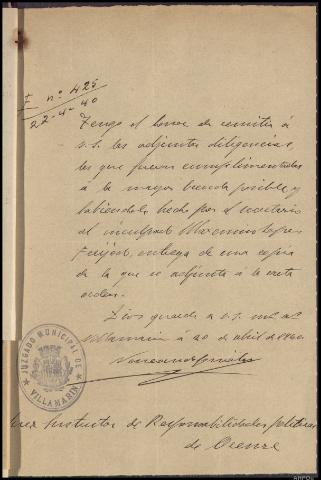 E nº 425
22-4-40
Tengo el honor de remitir á
V.S. las adjuntas diligencias,
las que fueron cumplimentadas
á la mayor brevedad posible y
habiéndole hecho por el secretario
al inculpado Maximino López
Feijóo, entrega de una copia
de la que se adjunta á la carta
orden.
Dios guarde a V.S. m. a.
Villamarin á 20 de abril de 1940.
JUZGADO MUNICIPAL DE
VILLAMARIN
Juez Instructor de Responsabilidades politicas
de Orense